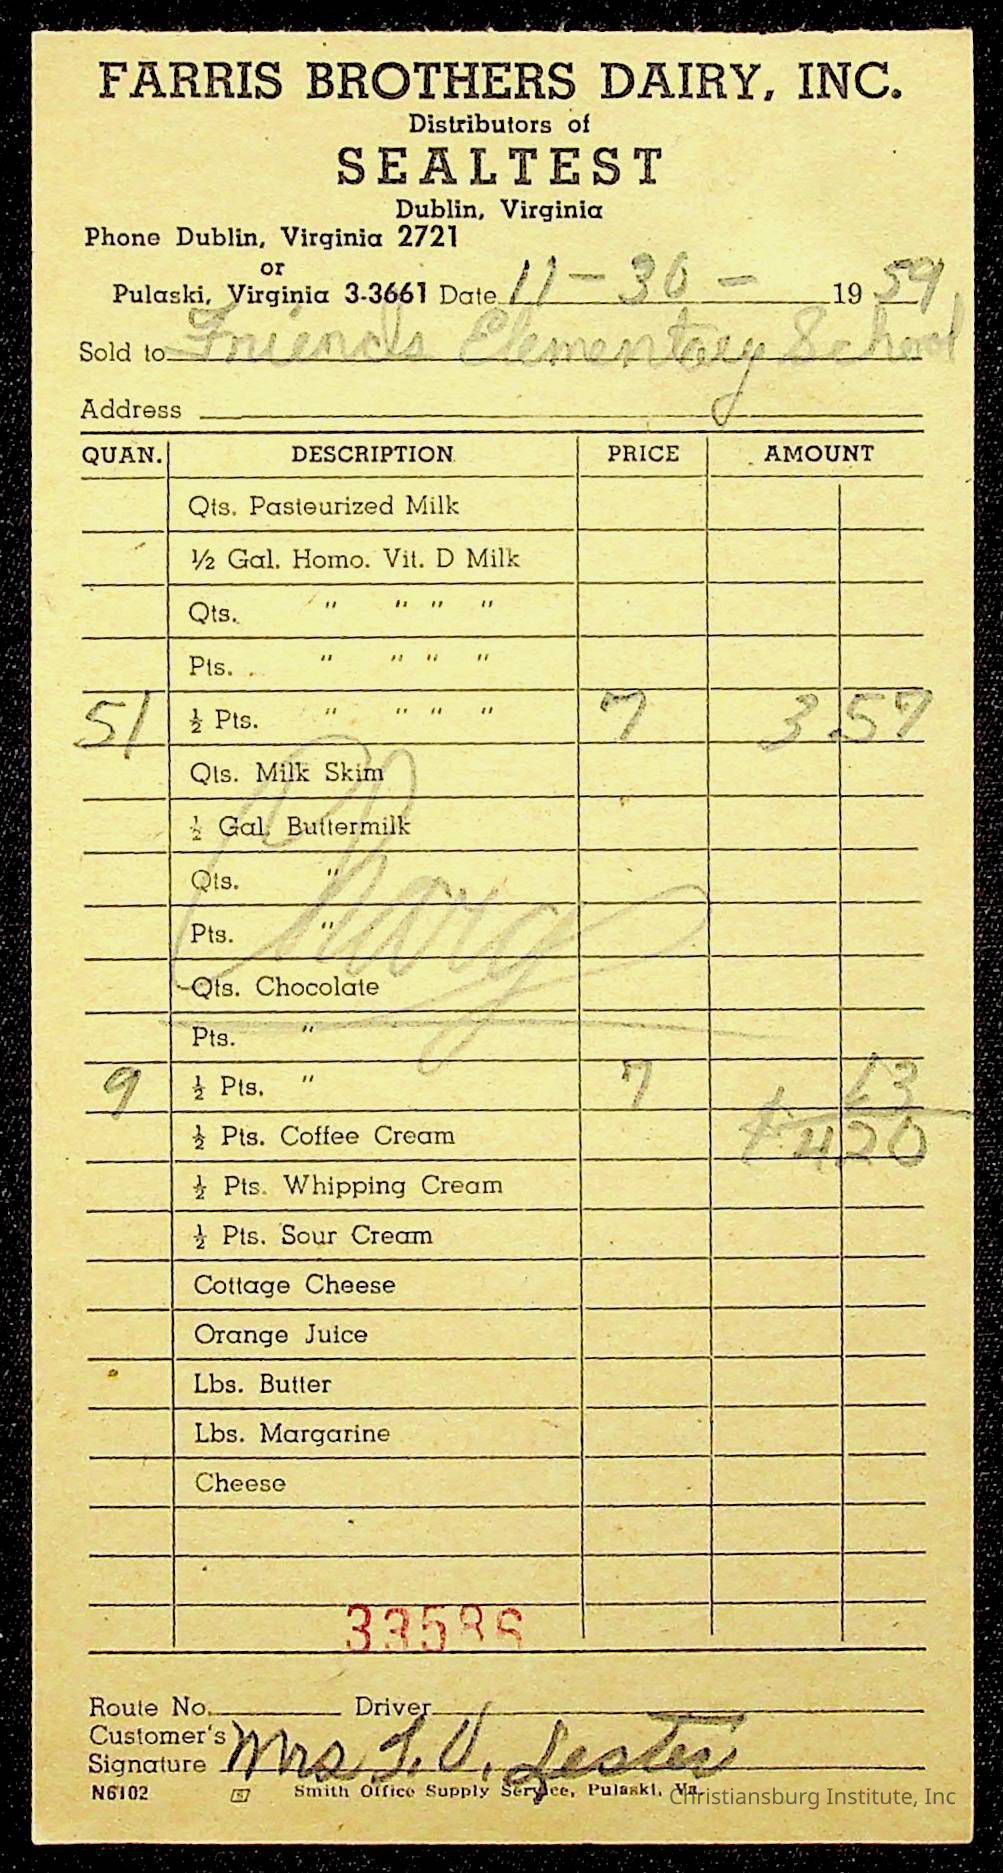 FARRIS BROTHERS DAIRY, INC.
Distributors of
SEALTEST
Dublin, Virginia
Phone Dublin, Virginia 2721
or
Pulaski, Virginia 3-3661 Date 11-30- 19 59
Sold to Friends Elementary School
Address
QUAN. DESCRIPTION PRICE AMOUNT
Qts. Pasteurized Milk
½ Gal. Homo. Vit. D Milk
Qts. " " " "
Pts. " " " "
51 ½ Pts. " " " " 7 3.57
Qts. Milk Skim
½ Gal. Buttermilk
Qts. "
Pts. "
Charg
Qts. Chocolate
Pts. "
9 ½ Pts. " 7 63
½ Pts. Coffee Cream 4.20
½ Pts. Whipping Cream
½ Pts. Sour Cream
Cottage Cheese
Orange Juice
Lbs. Butter
Lbs. Margarine
Cheese
Route No. Driver
Customer's
Signature Mrs L. V. Lester
N6102 Smith Office Supply Service, Pulaski, Va.
Christiansburg Institute, Inc